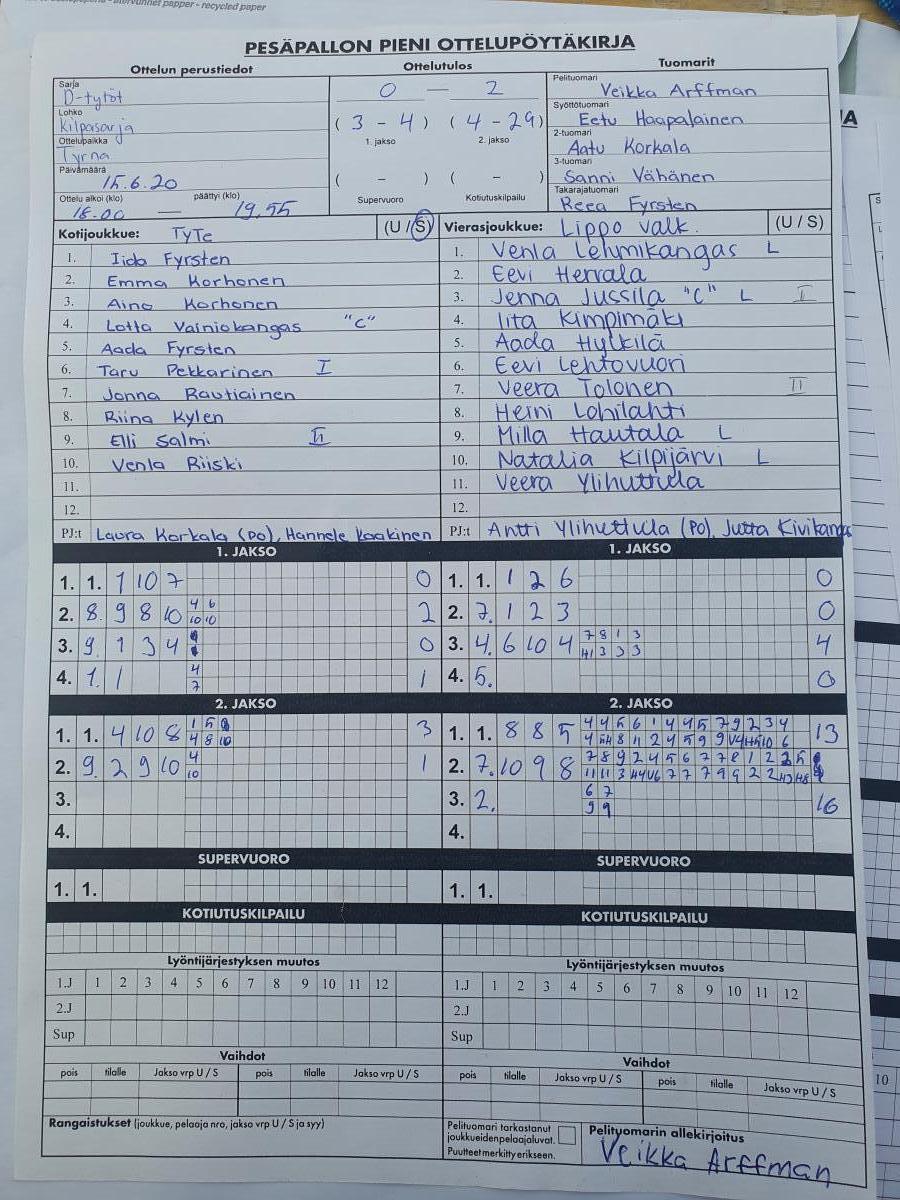 - recycled paper
PESÄPALLON PIENI OTTELUPÖYTÄKIRJA
Ottelun perustiedot
Sarja
D-tytöt
Lohko
Kilpasarja
Ottelupaikka
Tyrnä
Päivämäärä
15.6.20
Ottelu alkoi (klo) päättyi (klo)
18.00 — 19.55
Ottelutulos
0 — 2
( 3 - 4 ) ( 4 - 29 )
1. jakso 2. jakso
( - ) ( - )
Supervuoro Kotiutuskilpailu
Tuomarit
Pelituomari
Veikka Arffman
Syöttötuomari
Eetu Haapalainen
2-tuomari
Aatu Korkala
3-tuomari
Sanni Vähänen
Takarajatuomari
Reea Fyrsten
Kotijoukkue: TyTe (U / S)
1. Iida Fyrsten
2. Emma Korhonen
3. Aino Korhonen
4. Lotta Vainiokangas "C"
5. Aada Fyrsten
6. Taru Pekkarinen I
7. Jonna Rautiainen
8. Riina Kylen
9. Elli Salmi II
10. Venla Riiski
11.
12.
PJ:t Laura Korkala (PO), Hannele Kaakinen
Vierasjoukkue: Lippo Valk. (U / S)
1. Venla Lehmikangas L
2. Eevi Herrala
3. Jenna Jussila "C" L I
4. Iita Kimpimäki
5. Aada Hylkilä
6. Eevi Lehtovuori
7. Veera Tolonen II
8. Heini Lohilahti
9. Milla Hautala L
10. Natalia Kilpijärvi L
11. Veera Ylihuttula
12.
PJ:t Antti Ylihuttula (PO), Jutta Kivikangas
1. JAKSO
1. 1. 1 10 7 0
2. 8. 9 8 10 4 6 2
10 10
3. 9. 1 3 4 0
4. 1. 1 4 1
7
1. JAKSO
1. 1. 1 2 6 0
2. 7. 1 2 3 0
3. 4. 6 10 4 7 8 1 3 4
3 3 3
4. 5. 0
2. JAKSO
1. 1. 4 10 8 1 5 8 3
4 8 10
2. 9. 2 9 10 4 1
10
3.
4.
2. JAKSO
1. 1. 8 8 5 4 4 5 6 1 4 4 5 7 9 2 3 4 13
2. 7. 10 9 8 7 8 9 2 4 5 6 7 7 8 1 2 2 5
3. 2. 6 7 16
9 9
4.
SUPERVUORO
1. 1.
SUPERVUORO
1. 1.
KOTIUTUSKILPAILU
KOTIUTUSKILPAILU
Lyöntijärjestyksen muutos
1.J 1 2 3 4 5 6 7 8 9 10 11 12
2.J
Sup
Lyöntijärjestyksen muutos
1.J 1 2 3 4 5 6 7 8 9 10 11 12
2.J
Sup
Vaihdot
pois tilalle Jakso vrp U / S pois tilalle Jakso vrp U / S
Vaihdot
pois tilalle Jakso vrp U / S pois tilalle Jakso vrp U / S
Rangaistukset (joukkue, pelaaja nro, jakso vrp U / S ja syy)
Pelituomari tarkastanut
joukkueiden pelaajaluvat.
Puutteet merkitty erikseen.
Pelituomarin allekirjoitus
Veikka Arffman
A
S
L
10